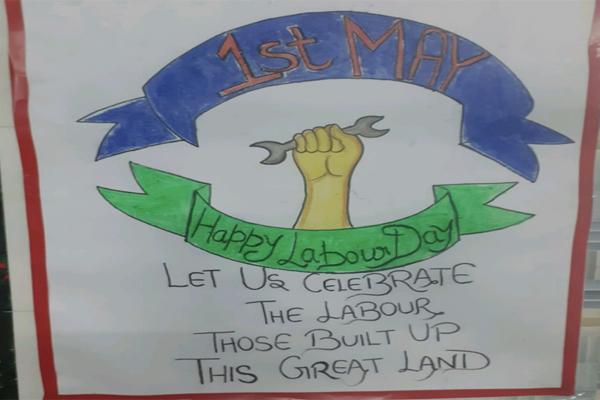 1st MAY
Happy Labour Day
LET US CELEBRATE
THE LABOUR
THOSE BUILT UP
THIS GREAT LAND